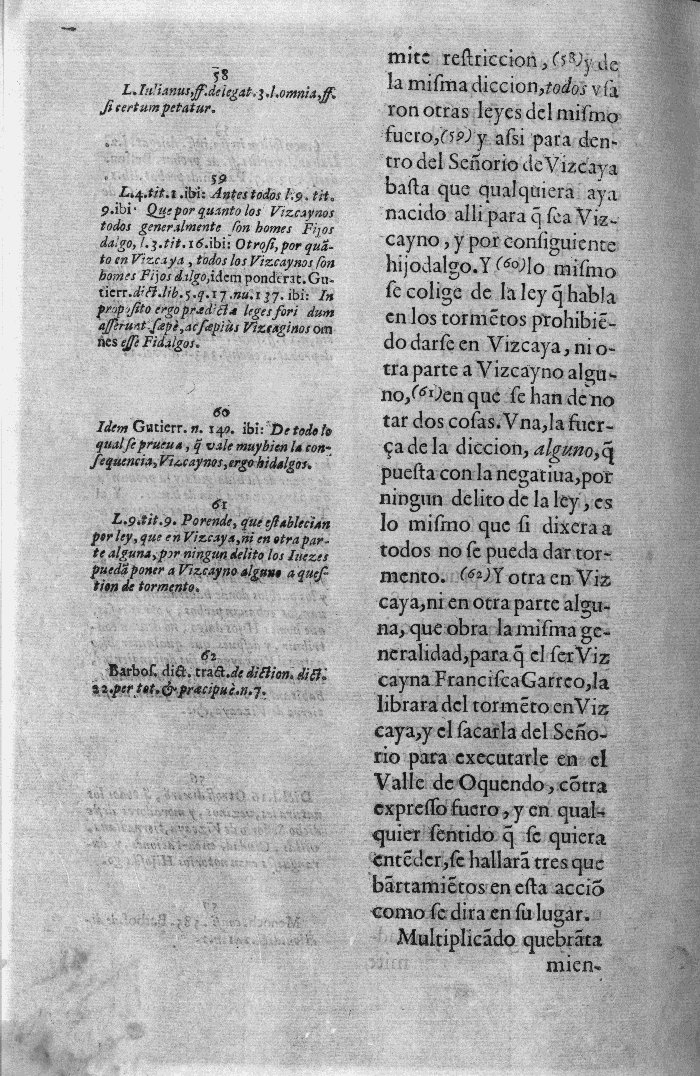 58
L. Iulianus, ff. de legat. 3. l. omnia, ff.
si certum petatur.
59
L. 4. tit. 1. ibi: Antes todos l. 9. tit.
9. ibi: Que por quanto los Vizcaynos
todos generalmente son homes Fijos
dalgo, l. 3. tit. 16. ibi: Otrosi, por quã
to en Vizcaya, todos los Vizcaynos son
homes Fijos dalgo, idem ponderat. Gu-
tierr. dict. lib. 5. q. 17. nu. 137. ibi: In
proposito ergo prædictæ leges fori dum
asserunt sæpè, ac sæpius Vizcaginos om
nes esse Fidalgos.
60
Idem Gutierr. n. 140. ibi: De todo lo
qual se prueua, q̃ vale muybien la con-
sequencia, Vizcaynos, ergo hidalgos.
61
L. 9. tit. 9. Porende, que establecian
por ley, que en Vizcaya, ni en otra par-
te alguna, por ningun delito los Iuezes
puedã poner a Vizcayno alguno a ques-
tion de tormento.
62
Barbos. dict. tract. de diction. dict.
22. per tot. & præcipuè. n. 7.
mite restriccion, (58) y de
la misma diccion, todos vsa
ron otras leyes del mismo
fuero, (59) y assi para den-
tro del Señorio de Vizcaya
basta que qualquiera aya
nacido alli para q̃ sea Viz-
cayno, y por consiguiente
hijodalgo. Y (60) lo mismo
se colige de la ley q̃ habla
en los tormẽtos prohibiẽ-
do darse en Vizcaya, ni o-
tra parte a Vizcayno algu-
no, (61) en que se han de no
tar dos cosas. Vna, la fuer-
ça de la diccion, alguno, q̃
puesta con la negatiua, por
ningun delito de la ley, es
lo mismo que si dixera a
todos no se pueda dar tor-
mento. (62) Y otra en Viz
caya, ni en otra parte algu-
na, que obra la misma ge-
neralidad, para q̃ el ser Viz
cayna Francisca Garreo, la
librara del tormẽto en Viz
caya, y el sacarla del Seño-
rio para executarle en el
Valle de Oquendo, cõtra
expresso fuero, y en qual-
quier sentido q̃ se quiera
entẽder, se hallarã tres que
bãrtamiẽtos en esta acciõ
como se dira en su lugar.
Multiplicãdo quebrãta
mien-